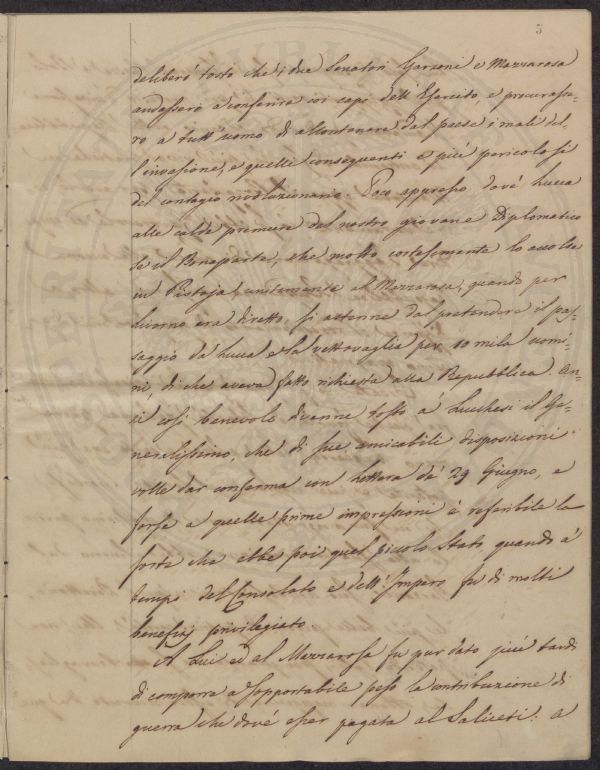 5
deliberò tosto che i due Senatori Garzoni e Mazzarosa
andassero a conferire coi capi dell'Esercito, e procurasse-
ro a tutt'uomo di allontanare dal paese i mali del-
l'invasione, e quelli conseguenti e più pericolosi
del contagio rivoluzionario. Poco appresso dovè Lucca
alle calde premure del nostro giovane Diplomatico
se il Bonaparte, che molto cortesemente lo accolse
in Pistoja, unitamente al Mazzarosa, quando per
Livorno era diretto, si astenne dal pretendere il pas-
saggio da Lucca e la vettovaglia per 10 mila uomi-
ni, di che aveva fatto richiesta alla Repubblica. An-
zi così benevolo divenne tosto a' Lucchesi il Ge-
neralissimo, che di sue amicabili disposizioni
volle dar conferma con lettera de' 29 Giugno, e
forse a quelle prime impressioni è referibile la
sorte che ebbe poi quel piccolo Stato, quando a'
tempi del Consolato e dell'Impero fu di molti
benefizj privilegiato.
A Lui ed al Mazzarosa fu pur dato più tardi
di comporre a sopportabile peso la contribuzione di
guerra che dovè esser pagata al Saliceti: a